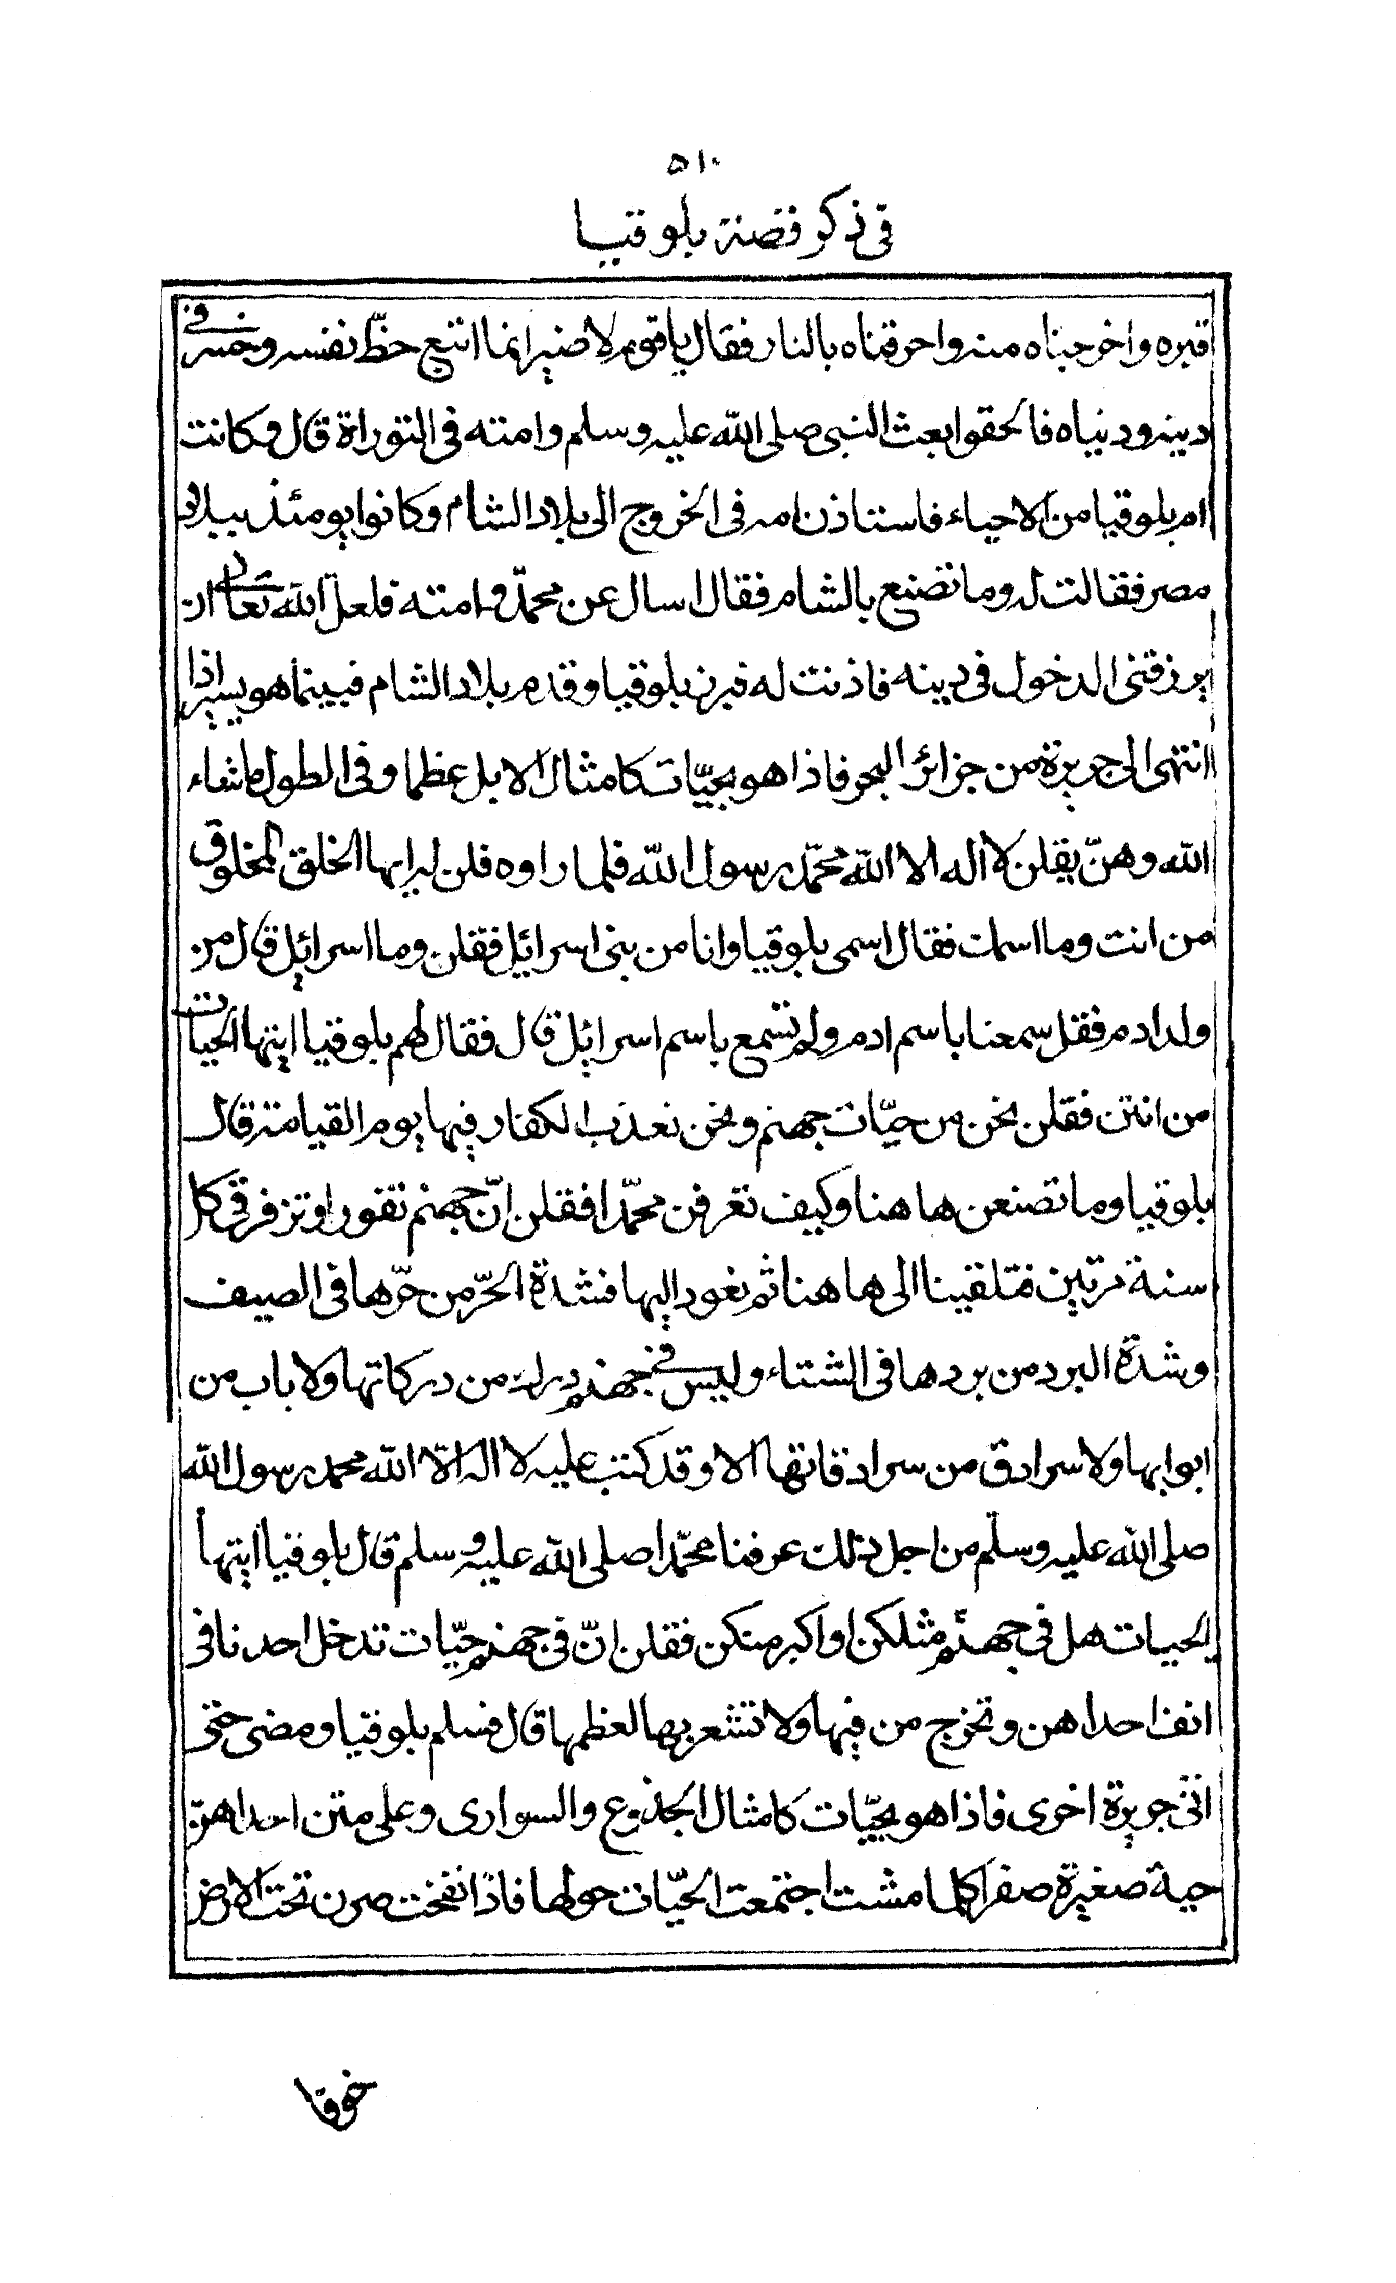 ٥١٠
في ذكر قصة بلوقيا
قبره واخرجناه منه واحرقناه بالنار فقال يا قوم لا ضير انما اتبع حظ نفسه وخسر في
دينه ودنياه فالحقوا بعث النبي صلى الله عليه وسلم وامته في التوراة قال وكانت
ام بلوقيا من الاحياء فاستاذن امه في الخروج الى بلاد الشام وكانوا يومئذ ببلاد
مصر فقالت له وما تصنع بالشام فقال اسال عن محمّد و امته فلعل الله تعالى ان
يرزقني الدخول في دينه فاذنت له فبرز بلوقيا وقدم بلاد الشام فبينما هو يسير اذا
انتهى الى جزيرة من جزائر البحر فاذا هو بحيّات كامثال الابل عظما وفي الطول ما شاء
الله وهنّ يقلن لا اله الا الله محمّد رسول الله فلما راوه قلن له ايها الخلق المخلوق
من انت وما اسمك فقال اسمي بلوقيا وانا من بني اسرائيل فقلن وما اسرائيل قال من
ولد ادم فقلن سمعنا باسم ادم ولم نسمع باسم اسرائيل قال فقال لهم بلوقيا ايتها الحيات
من انتن فقلن نحن من حيّات جهنم ونحن نعذب الكفار فيها يوم القيامة قال
بلوقيا وما تصنعن ها هنا وكيف تعرفن محمّدا فقلن انّ جهنم تفور وتزفر في كل
سنة مرتين فتلقينا الى ها هنا ثم نعود اليها فشدة الحرّ من حرّها في الصيف
وشدة البرد من بردها في الشتاء وليس في جهنم درك من دركاتها ولا باب من
ابوابها ولا سرادق من سرادقاتها الا وقد كتب عليه لا اله الا الله محمد رسول الله
صلى الله عليه وسلّم من اجل ذلك عرفنا محمّدا صلى الله عليه وسلم قال بلوقيا ايتها
الحيات هل في جهنم مثلكن او اكبر منكن فقلن انّ في جهنم حيّات تدخل احدنا في
انف احداهن وتخرج من فيها ولا تشعر بها لعظمها قال فسلم بلوقيا ومضى حتى
اتى جزيرة اخرى فاذا هو بحيّات كامثال الجذوع والسواري وعلى متن احداهنّ
حية صغيرة صفرا كلما مشت اجتمعت الحيّات حولها فاذا نفخت صرن تحت الارض
خوفا